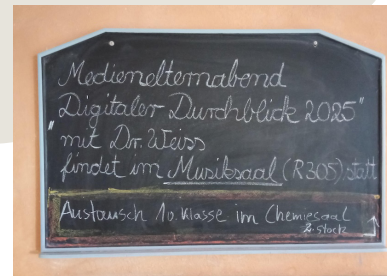 Medienelternabend
„Digitaler Durchblick 2025"
mit Dr. Weiss
findet im Musiksaal (R305) statt
Austausch 10. Klasse im Chemiesaal
2. Stock